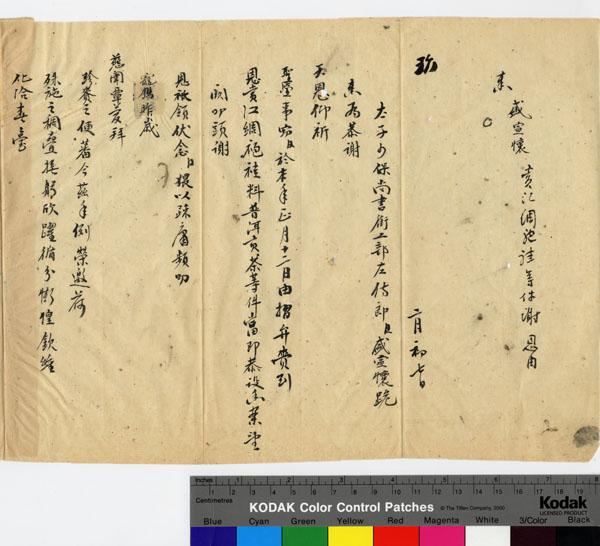 奏 盛宣懷 賞江綢袍褂等件謝 恩由
二月初七日
太子少保尚書銜工部左侍郎臣盛宣懷跪
奏為恭謝
天恩仰祈
聖鑒事竊臣於本年正月十二日由摺弁賫到
恩賞江綢袍褂料普洱貢茶等件當即恭設香案望
闕叩頭謝
恩祗領伏念臣猥以疎庸類叨
寵錫昨歲
慈闈
珍賚之便蕃今茲年例榮邀
殊施之稠疊撫躬欣躍循分慚惶欽維
化洽春臺
Inches
Centimetres
KODAK Color Control Patches
© The Tiffen Company, 2000
Kodak
LICENSED PRODUCT
Blue Cyan Green Yellow Red Magenta White 3/Color Black